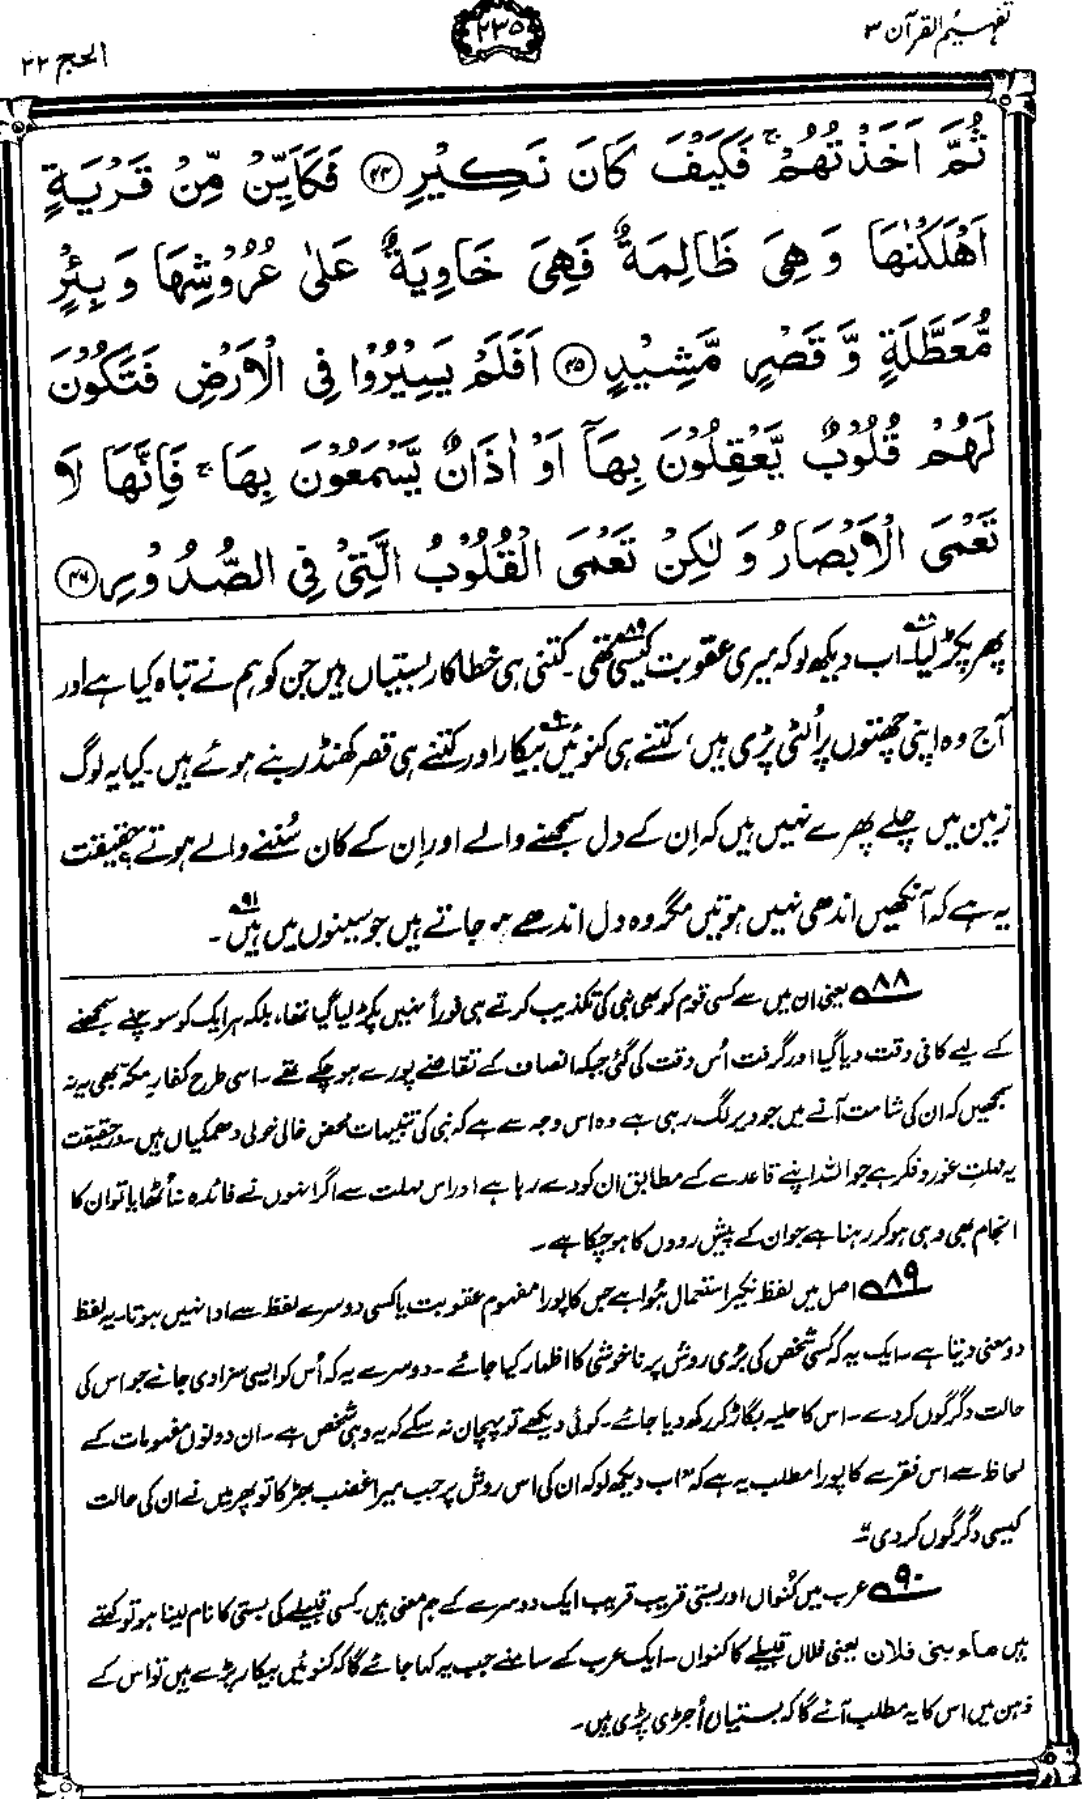 تفہیم القرآن ۳
۲۳۵
الحج ۲۲
ثُمَّ اَخَذْتُهُمْ ۚ فَكَيْفَ كَانَ نَكِيْرِ ﴿۴۴﴾ فَكَاَيِّنْ مِّنْ قَرْيَةٍ
اَهْلَكْنٰهَا وَ هِيَ ظَالِمَةٌ فَهِيَ خَاوِيَةٌ عَلٰى عُرُوْشِهَا وَ بِئْرٍ
مُّعَطَّلَةٍ وَّ قَصْرٍ مَّشِيْدٍ ﴿۴۵﴾ اَفَلَمْ يَسِيْرُوْا فِي الْاَرْضِ فَتَكُوْنَ
لَهُمْ قُلُوْبٌ يَّعْقِلُوْنَ بِهَاۤ اَوْ اٰذَانٌ يَّسْمَعُوْنَ بِهَا ۚ فَاِنَّهَا لَا
تَعْمَى الْاَبْصَارُ وَ لٰكِنْ تَعْمَى الْقُلُوْبُ الَّتِيْ فِي الصُّدُوْرِ ﴿۴۶﴾
پھر پکڑ لیا۔۸۸ اب دیکھ لو کہ میری عقوبت کیسی۸۹ تھی۔ کتنی ہی خطاکار بستیاں ہیں جن کو ہم نے تباہ کیا ہے اور
آج وہ اپنی چھتوں پر اُلٹی پڑی ہیں، کتنے ہی کنوئیں۹۰ بیکار اور کتنے ہی قصر کھنڈر بنے ہوئے ہیں۔ کیا یہ لوگ
زمین میں چلے پھرے نہیں ہیں کہ اِن کے دل سمجھنے والے اور اِن کے کان سُننے والے ہوتے؟ حقیقت
یہ ہے کہ آنکھیں اندھی نہیں ہوتیں مگر وہ دل اندھے ہو جاتے ہیں جو سینوں میں ہیں۹۱۔
۸۸ یعنی ان میں سے کسی قوم کو بھی نبی کی تکذیب کرتے ہی فوراً نہیں پکڑ لیا گیا تھا، بلکہ ہر ایک کو سوچنے سمجھنے
کے لیے کافی وقت دیا گیا اور گرفت اُس وقت کی گئی جبکہ انصاف کے تقاضے پورے ہو چکے تھے۔ اسی طرح کفارِ مکہ بھی یہ نہ
سمجھیں کہ ان کی شامت آنے میں جو دیر لگ رہی ہے وہ اس وجہ سے ہے کہ نبی کی تنبیہات محض خالی خولی دھمکیاں ہیں۔ درحقیقت
یہ مہلتِ غور و فکر ہے جو اللہ اپنے قاعدے کے مطابق ان کو دے رہا ہے اور اس مہلت سے اگر انہوں نے فائدہ نہ اُٹھایا تو ان کا
انجام بھی وہی ہو کر رہنا ہے جو ان کے پیش رووں کا ہو چکا ہے۔
۸۹ اصل میں لفظ نکیر استعمال ہُوا ہے جس کا پورا مفہوم عقوبت یا کسی دوسرے لفظ سے ادا نہیں ہوتا۔ یہ لفظ
دو معنی دیتا ہے۔ ایک یہ کہ کسی شخص کی بُری روش پر ناخوشی کا اظہار کیا جائے۔ دوسرے یہ کہ اُس کو ایسی سزا دی جائے جو اس کی
حالت دگرگوں کر دے۔ اس کا حلیہ بگاڑ کر رکھ دیا جائے۔ کوئی دیکھے تو پہچان نہ سکے کہ یہ وہی شخص ہے۔ ان دونوں مفہومات کے
لحاظ سے اس فقرے کا پورا مطلب یہ ہے کہ "اب دیکھ لو کہ ان کی اس روش پر جب میرا غضب بھڑکا تو پھر میں نے ان کی حالت
کیسی دگرگوں کر دی"۔
۹۰ عرب میں کُنواں اور بستی قریب قریب ایک دوسرے کے ہم معنی ہیں۔ کسی قبیلے کی بستی کا نام لینا ہو تو کہتے
ہیں ماء بنی فلان یعنی فلاں قبیلے کا کنواں۔ ایک عرب کے سامنے جب یہ کہا جائے گا کہ کنوئیں بیکار پڑے ہیں تو اس کے
ذہن میں اس کا یہ مطلب آئے گا کہ بستیاں اُجڑی پڑی ہیں۔